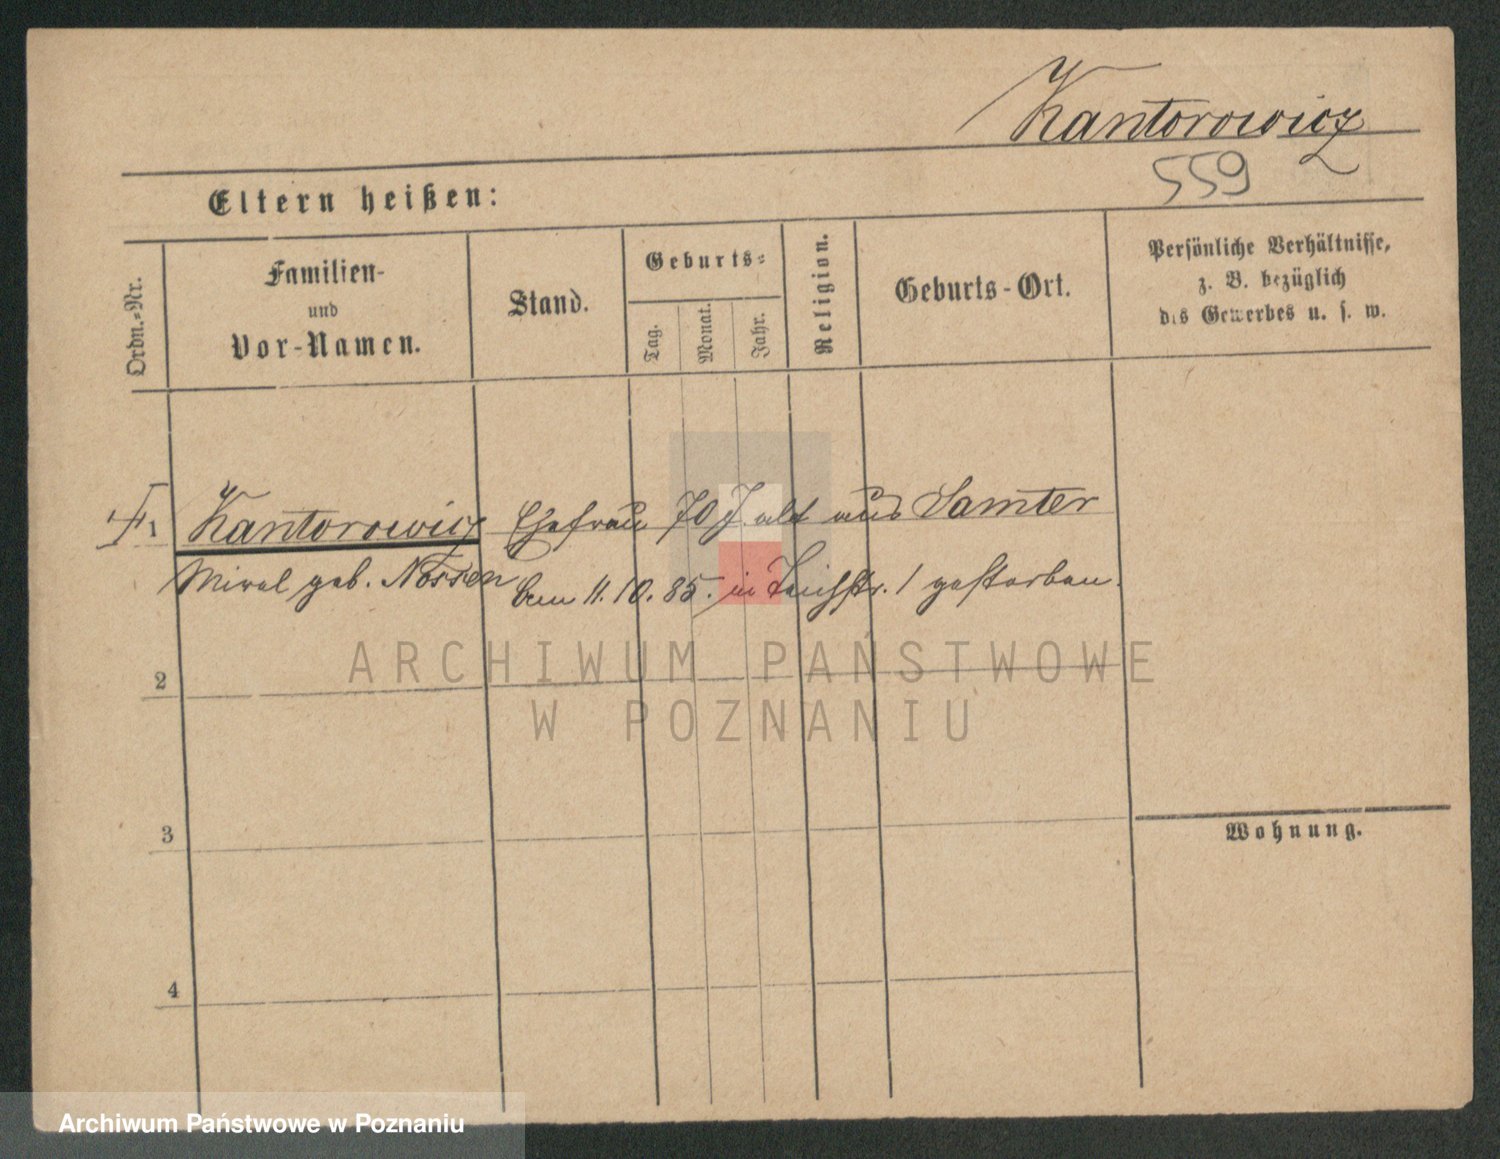 Kantorowicz
559
Eltern heißen:
Ordn.-Nr.
Familien-
und
Vor-Namen.
Stand.
Geburts-
Tag.
Monat.
Jahr.
Religion.
Geburts-Ort.
Persönliche Verhältnisse,
z. B. bezüglich
des Gewerbes u. s. w.
1 Kantorowicz Ehefrau 70 J. alt aus Samter
geb. Nossen am 11.10.85. in Teichstr. 1 gestorben.
ARCHIWUM PAŃSTWOWE
W POZNANIU
2
3
Wohnung.
4
Archiwum Państwowe w Poznaniu